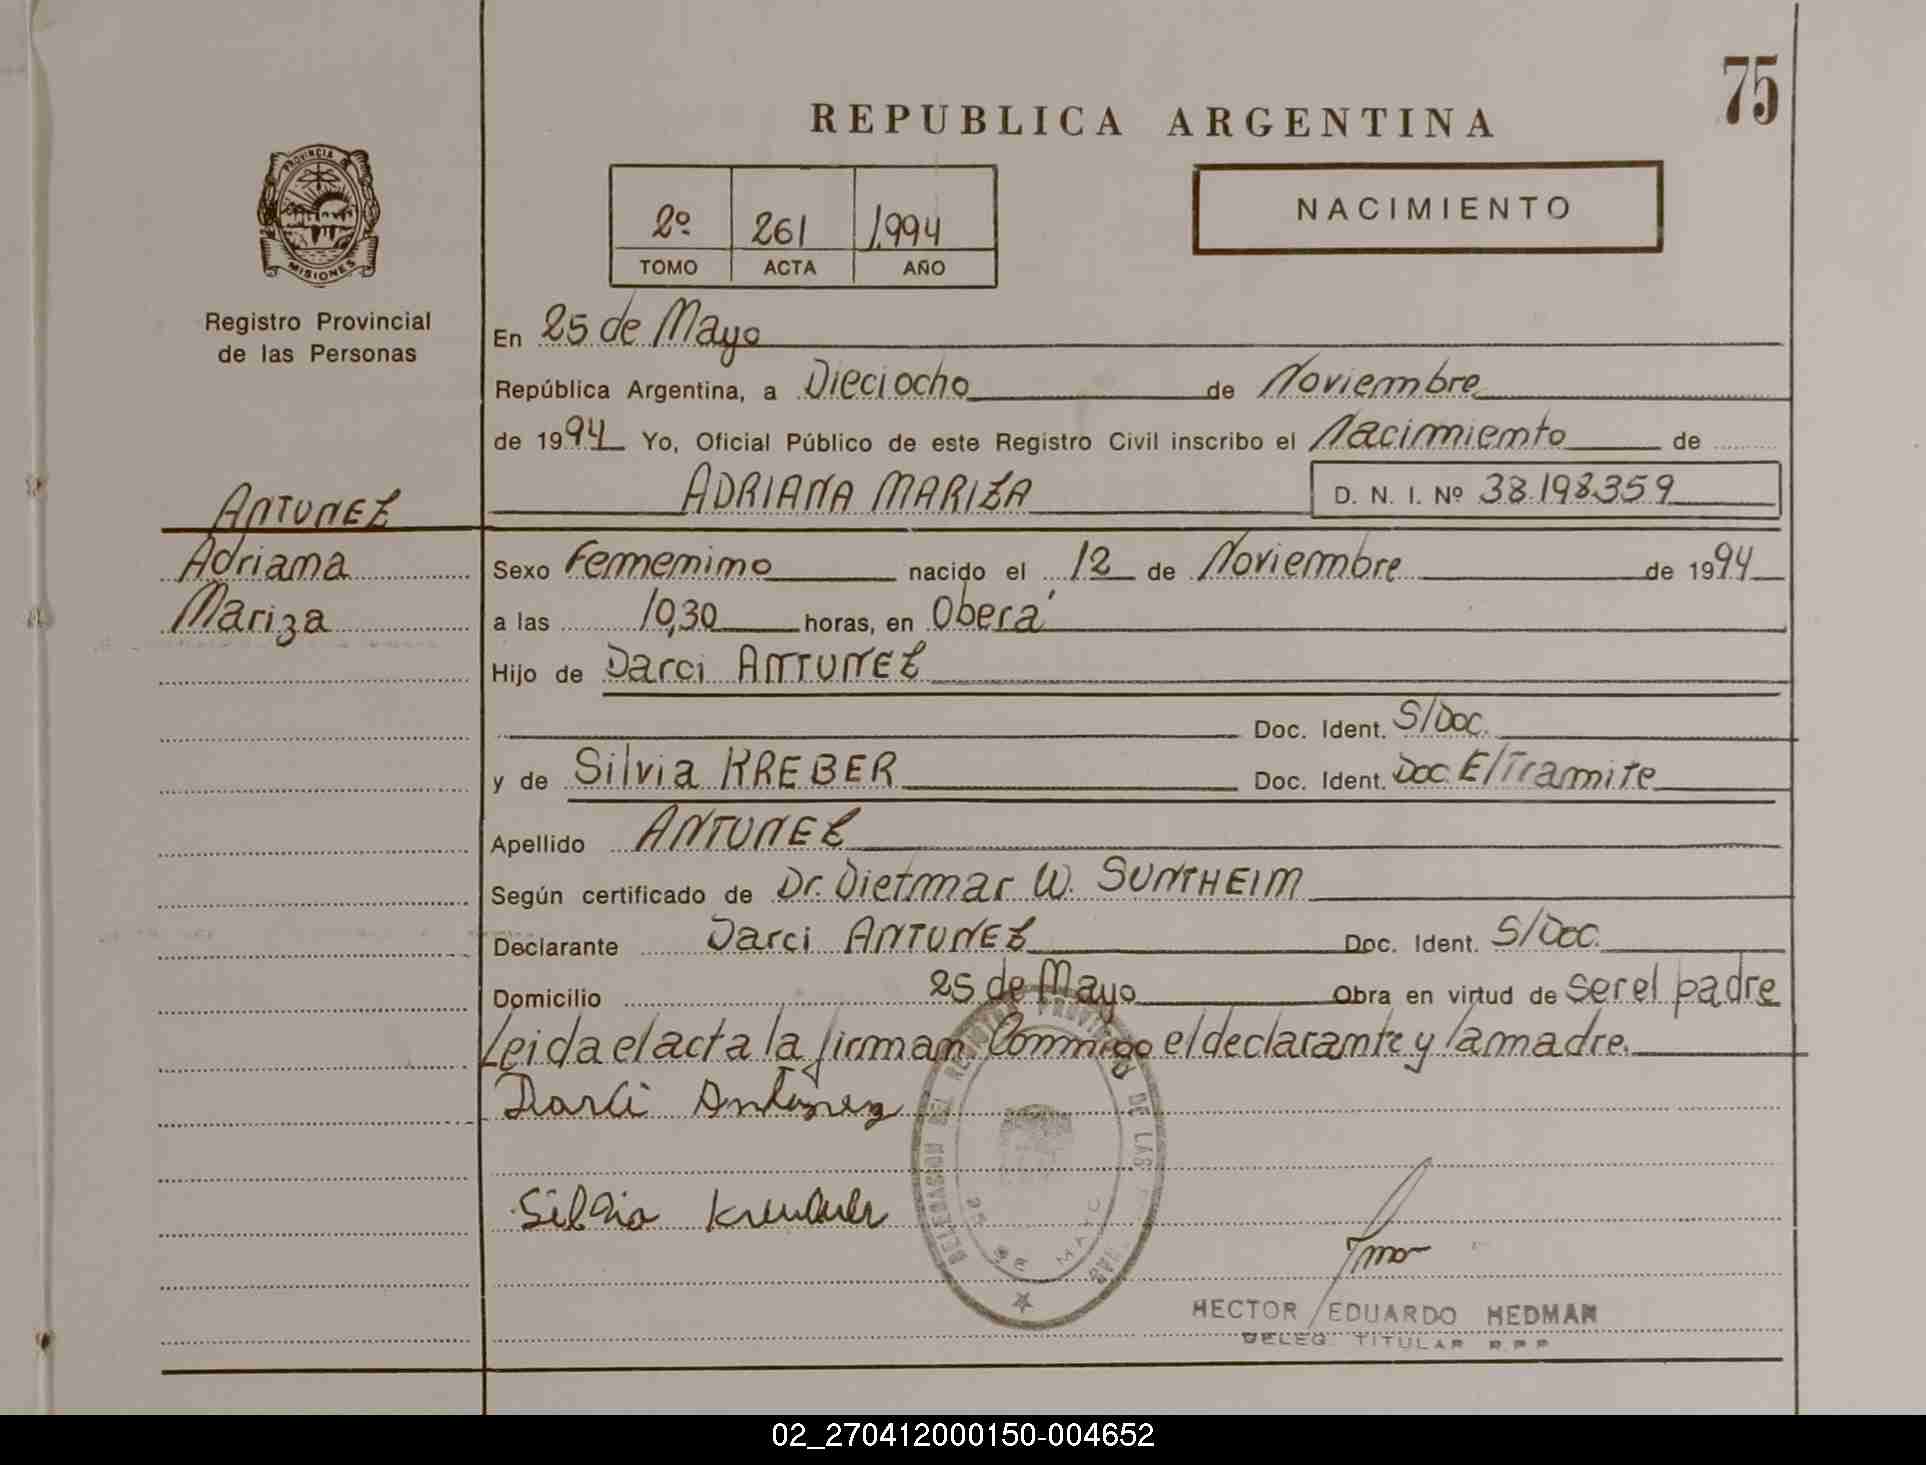 75
REPUBLICA ARGENTINA
PROVINCIA DE
MISIONES
Registro Provincial
de las Personas
2º 261 1.994
TOMO ACTA AÑO
NACIMIENTO
En 25 de Mayo
República Argentina, a Dieciocho de Noviembre
de 1994 Yo, Oficial Público de este Registro Civil inscribo el Nacimiento de
ADRIANA MARIZA D. N. I. Nº 38.198.359
ANTUNEZ
Adriana
Mariza
Sexo Femenino nacido el 12 de Noviembre de 1994
a las 10,30 horas, en Oberá
Hijo de Darci ANTUNEZ
Doc. Ident. S/Doc.
y de Silvia KREBER Doc. Ident. Doc E/Tramite
Apellido ANTUNEZ
Según certificado de Dr. Dietmar W. SUNTHEIM
Declarante Darci ANTUNEZ Doc. Ident. S/Doc.
Domicilio 25 de Mayo Obra en virtud de ser el padre
Leida el acta la firman Conmigo el declarante y la madre.
Darci Antunez
Silvia
DELEGASION DEL REGISTRO PROVINCIAL DE LAS
25 DE MAYO
HECTOR EDUARDO HEDMAN
DELEG. TITULAR R.P.P.
02_270412000150-004652